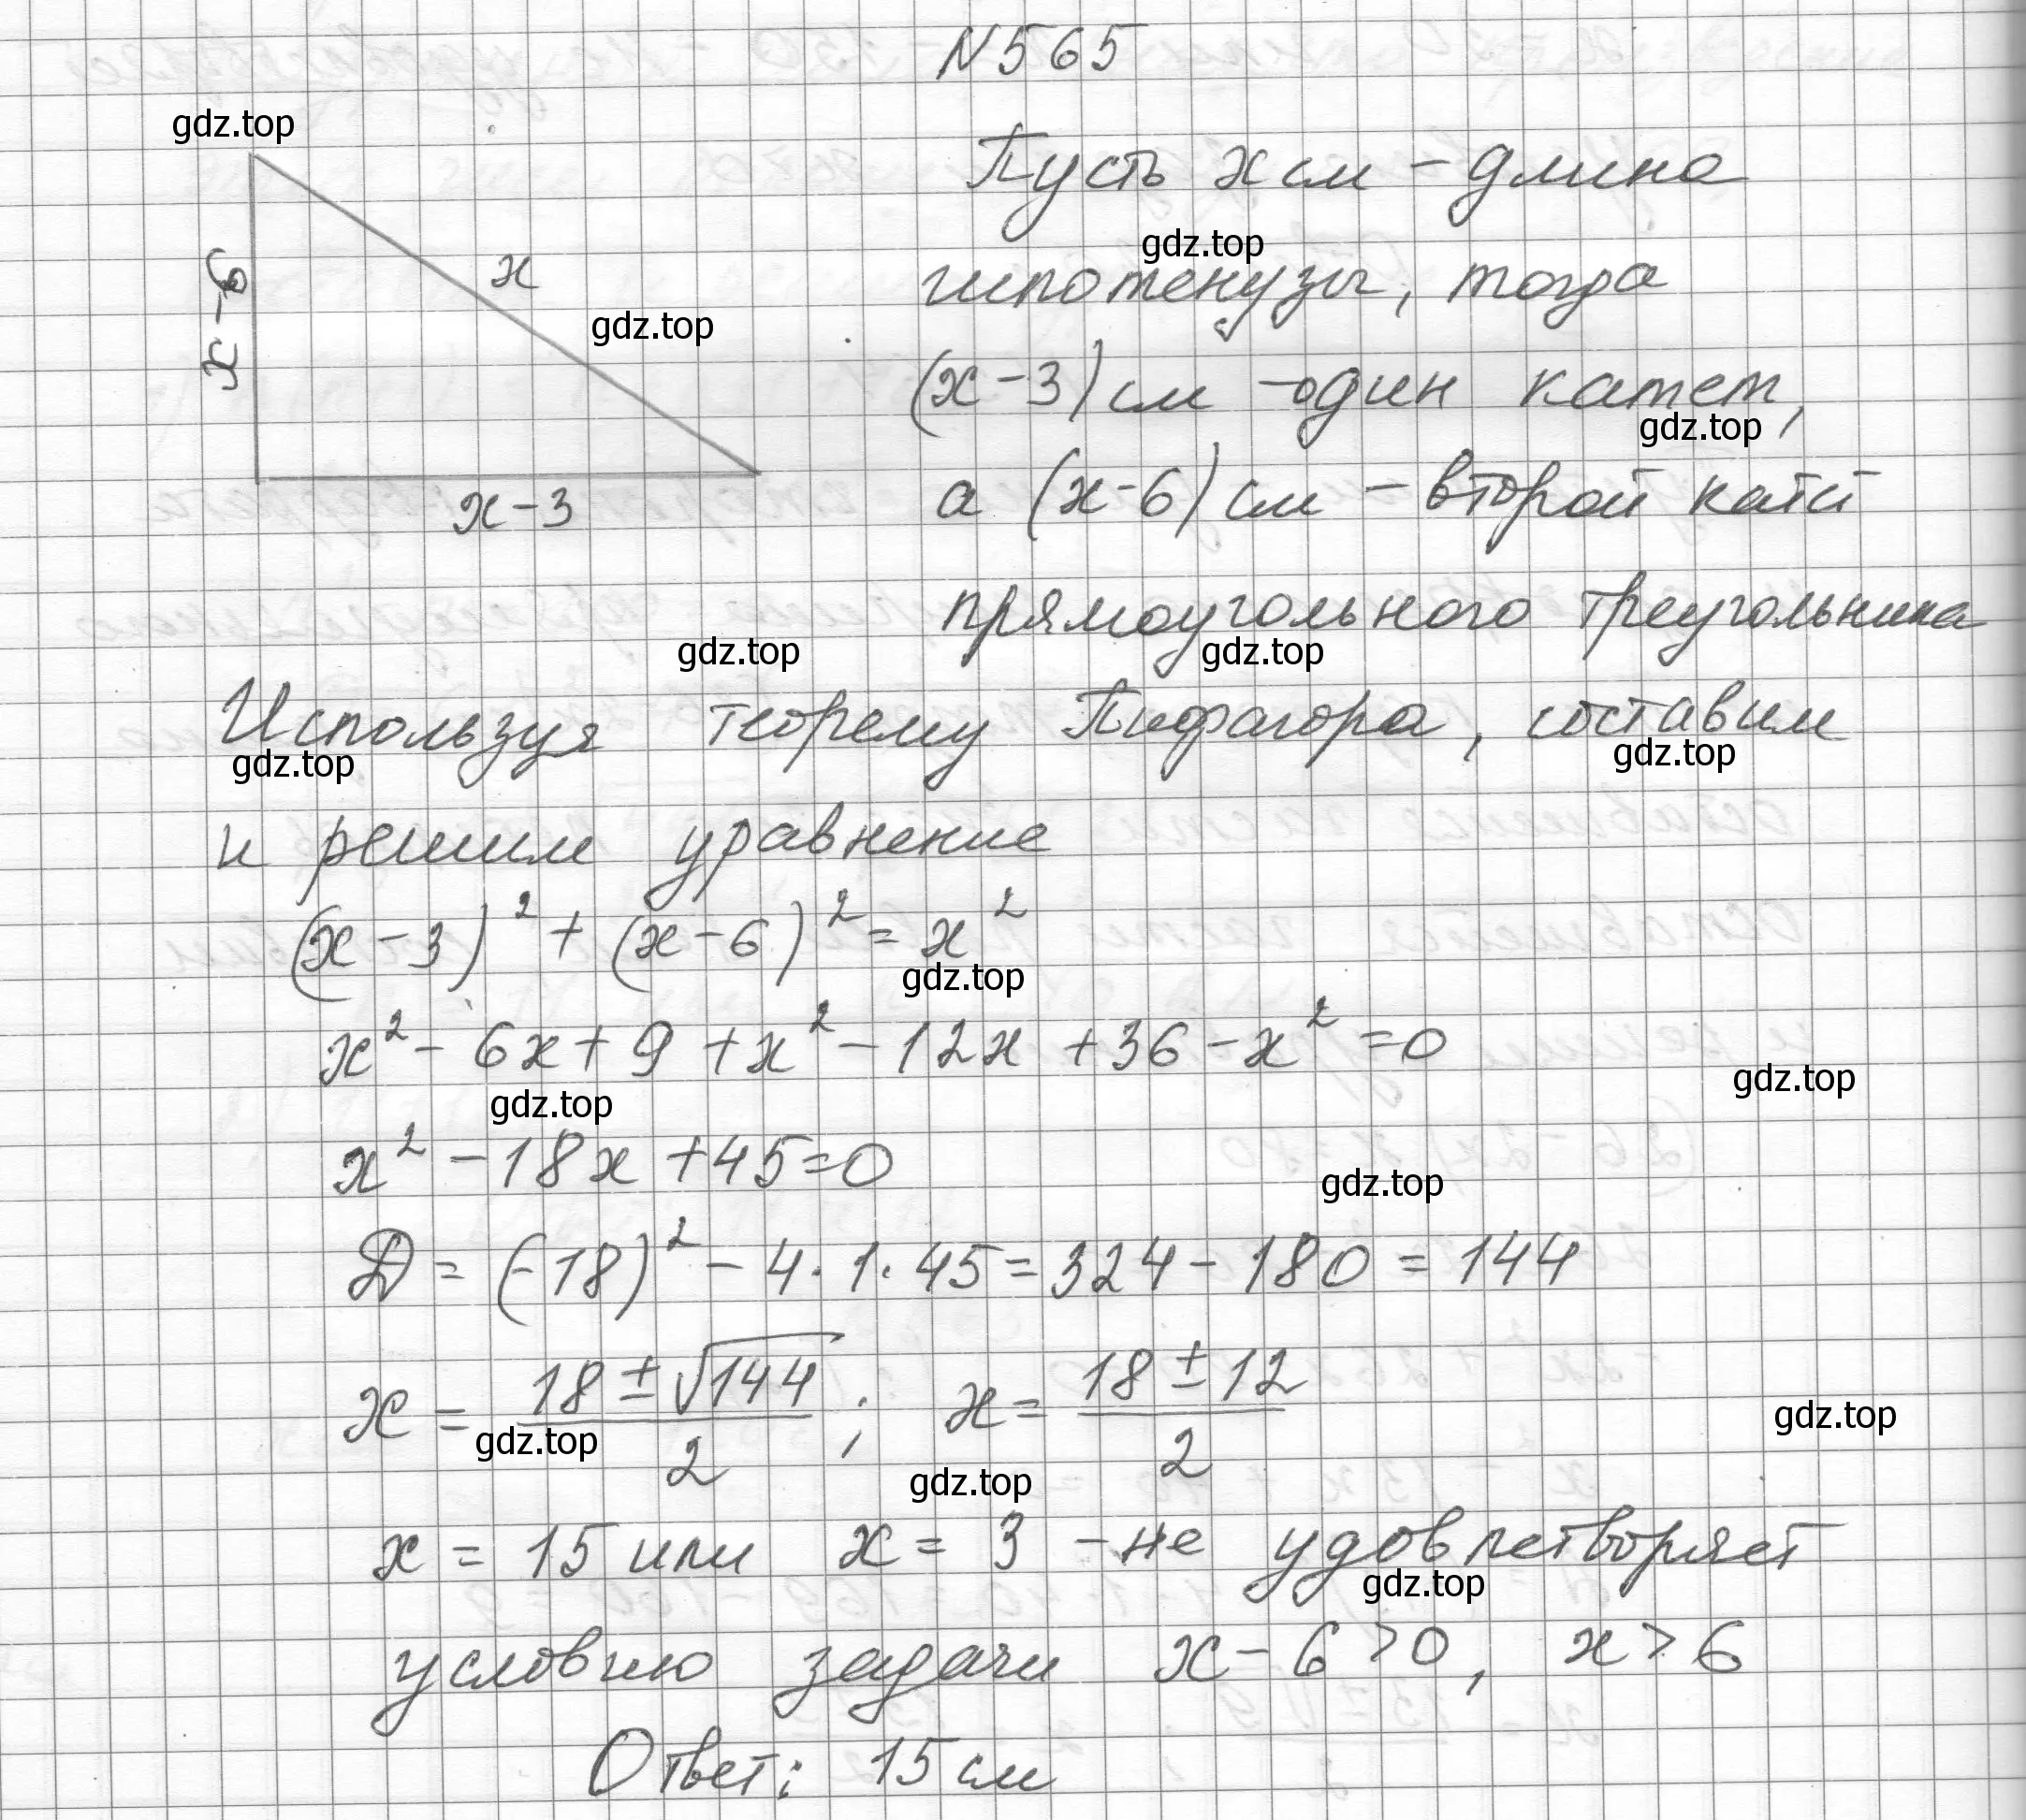 N 565
gdz.top
Пусть x см - длина
gdz.top
x
x - 6
гипотенузы, тогда
gdz.top
(x - 3) см - один катет,
gdz.top
x - 3
а (x - 6) см - второй катет
прямоугольного треугольника
gdz.top gdz.top
Используя теорему Пифагора, составим
gdz.top gdz.top
и решим уравнение
(x - 3)² + (x - 6)² = x²
gdz.top
x² - 6x + 9 + x² - 12x + 36 - x² = 0
gdz.top gdz.top
x² - 18x + 45 = 0
gdz.top
D = (-18)² - 4 · 1 · 45 = 324 - 180 = 144
x = (18 ± √144) / 2 ; x = (18 ± 12) / 2
gdz.top gdz.top gdz.top
x = 15 или x = 3 - не удовлетворяет
gdz.top
условию задачи x - 6 > 0, x > 6
Ответ: 15 см